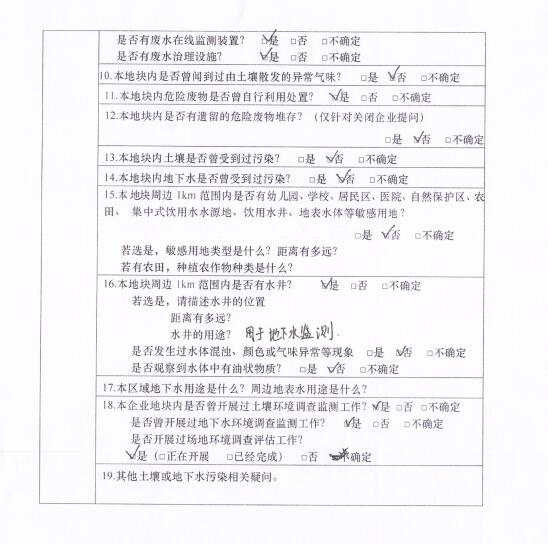 是否有废水在线监测装置? ☑是 □否 □不确定
是否有废水治理设施? ☑是 □否 □不确定
10.本地块内是否曾闻到过由土壤散发的异常气味? □是 ☑否 □不确定
11.本地块内危险废物是否曾自行利用处置? ☑是 □否 □不确定
12.本地块内是否有遗留的危险废物堆存?(仅针对关闭企业提问)
□是 ☑否 □不确定
13.本地块内土壤是否曾受到过污染? □是 ☑否 □不确定
14.本地块内地下水是否曾受到过污染? □是 ☑否 □不确定
15.本地块周边 1km 范围内是否有幼儿园、学校、居民区、医院、自然保护区、农
田、 集中式饮用水水源地、饮用水井、地表水体等敏感用地?
□是 ☑否 □不确定
若选是,敏感用地类型是什么?距离有多远?
若有农田,种植农作物种类是什么?
16.本地块周边 1km 范围内是否有水井? ☑是 □否 □不确定
若选是,请描述水井的位置
距离有多远?
水井的用途? 用于地下水监测.
是否发生过水体混浊、颜色或气味异常等现象 □是 ☑否 □不确定
是否观察到水体中有油状物质? □是 ☑否 □不确定
17.本区域地下水用途是什么?周边地表水用途是什么?
18.本企业地块内是否曾开展过土壤环境调查监测工作? ☑是 □否 □不确定
是否曾开展过地下水环境调查监测工作? ☑是 □否 □不确定
是否开展过场地环境调查评估工作?
☑是(□正在开展 □已经完成) □否 不确定
19.其他土壤或地下水污染相关疑问。